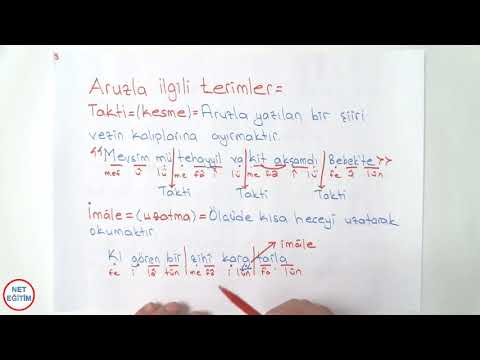 Aruzla ilgili terimler=
Takti=(kesme)=Aruzla yazılan bir şiiri
vezin kalıplarına ayırmaktır.
"Mevsim mü tehayyil va kit akşamdı Bebek'te"
mef û lü me fâ î lü me fâ î lü fe û lün
Takti Takti Takti
İmâle=(uzatma)=Ölçüde kısa heceyi uzatarak
okumaktır
imâle
Ki gören bir zihî kara tarla
fe i lâ tün me fâ i lün fa lün
NET
EĞİTİM